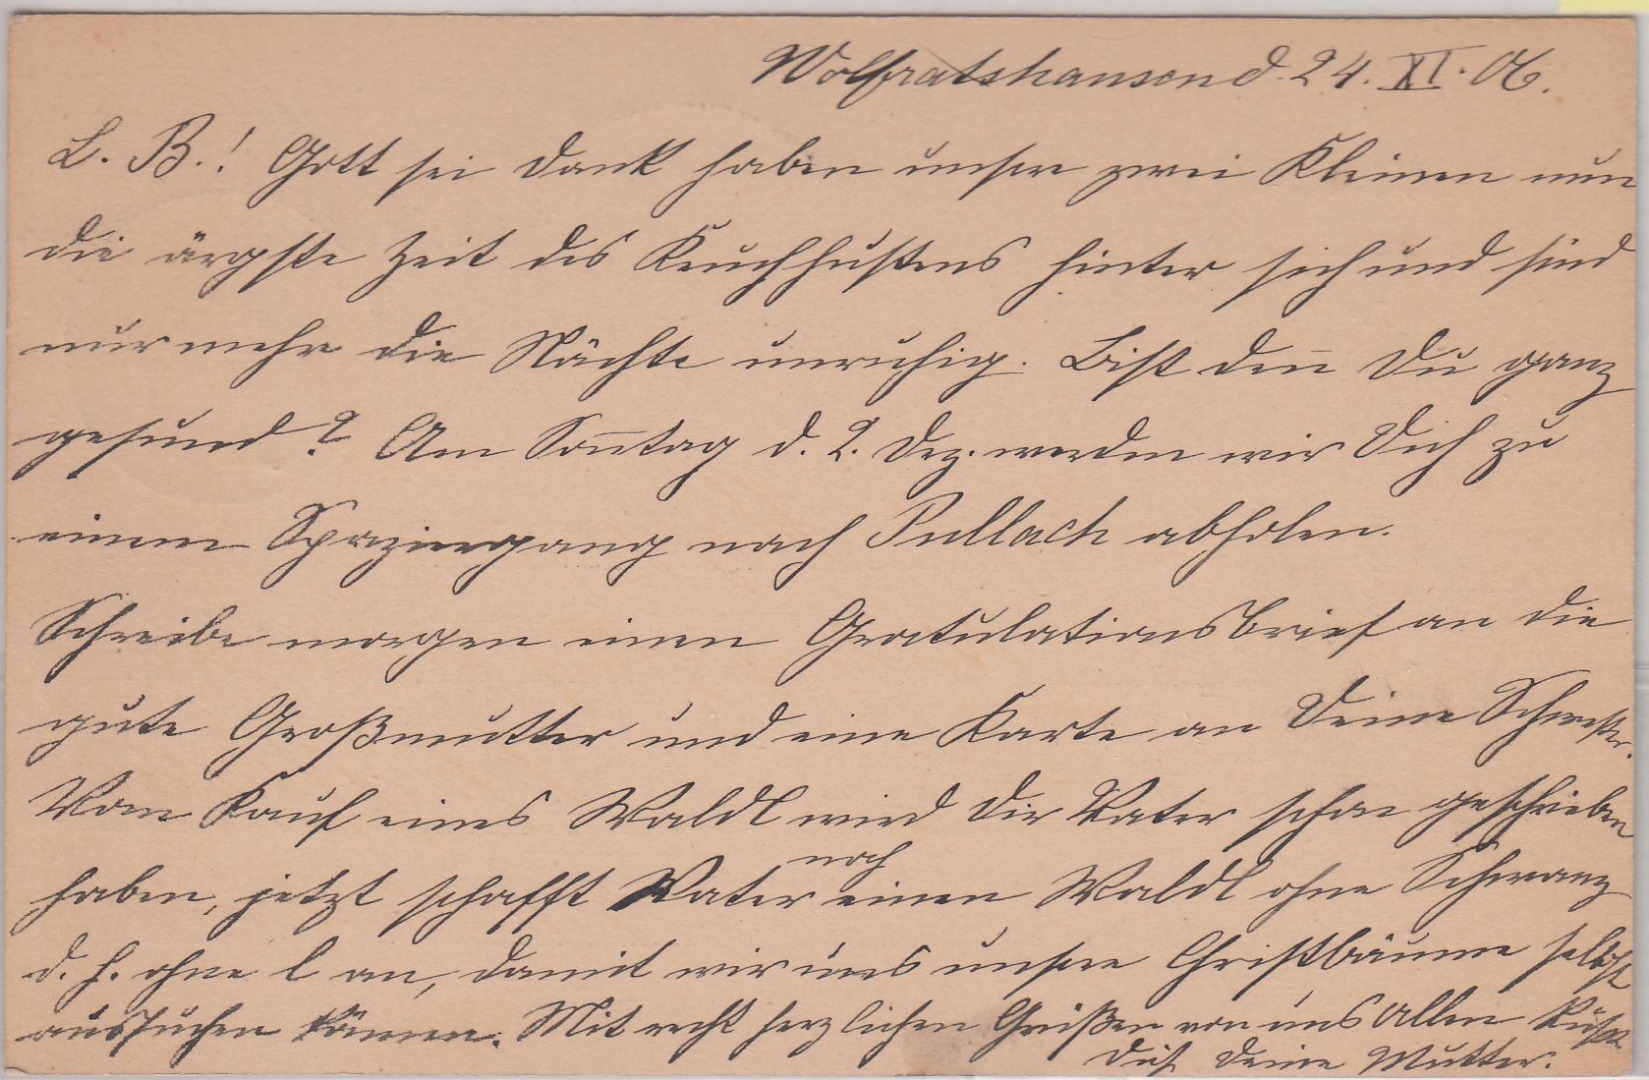 Wolfratshausen d. 24. XI. 06.
L. B.! Gott sei Dank haben unsere zwei Kleinen nun
die ärgste Zeit des Keuchhustens hinter sich und sind
nur mehr die Nächte unruhig. Bist den̅ Du ganz
gesund? Am Son̅tag d. 2. Dez. werden wir Dich zu
einem Spaziergang nach Pullach abholen.
Schreibe morgen einen Gratulationsbrief an die
gute Großmutter und eine Karte an Deine Schwester.
Vom Kauf eines Waldl wird Dir Vater schon geschrieben
noch
haben, jetzt schafft Vater einen Waldl ohne Schwanz
d. h. ohne l an, damit wir uns unsere Christbäume selbst
aussuchen können. Mit recht herzlichen Grüßen von uns Allen küßt
Dich Deine Mutter.